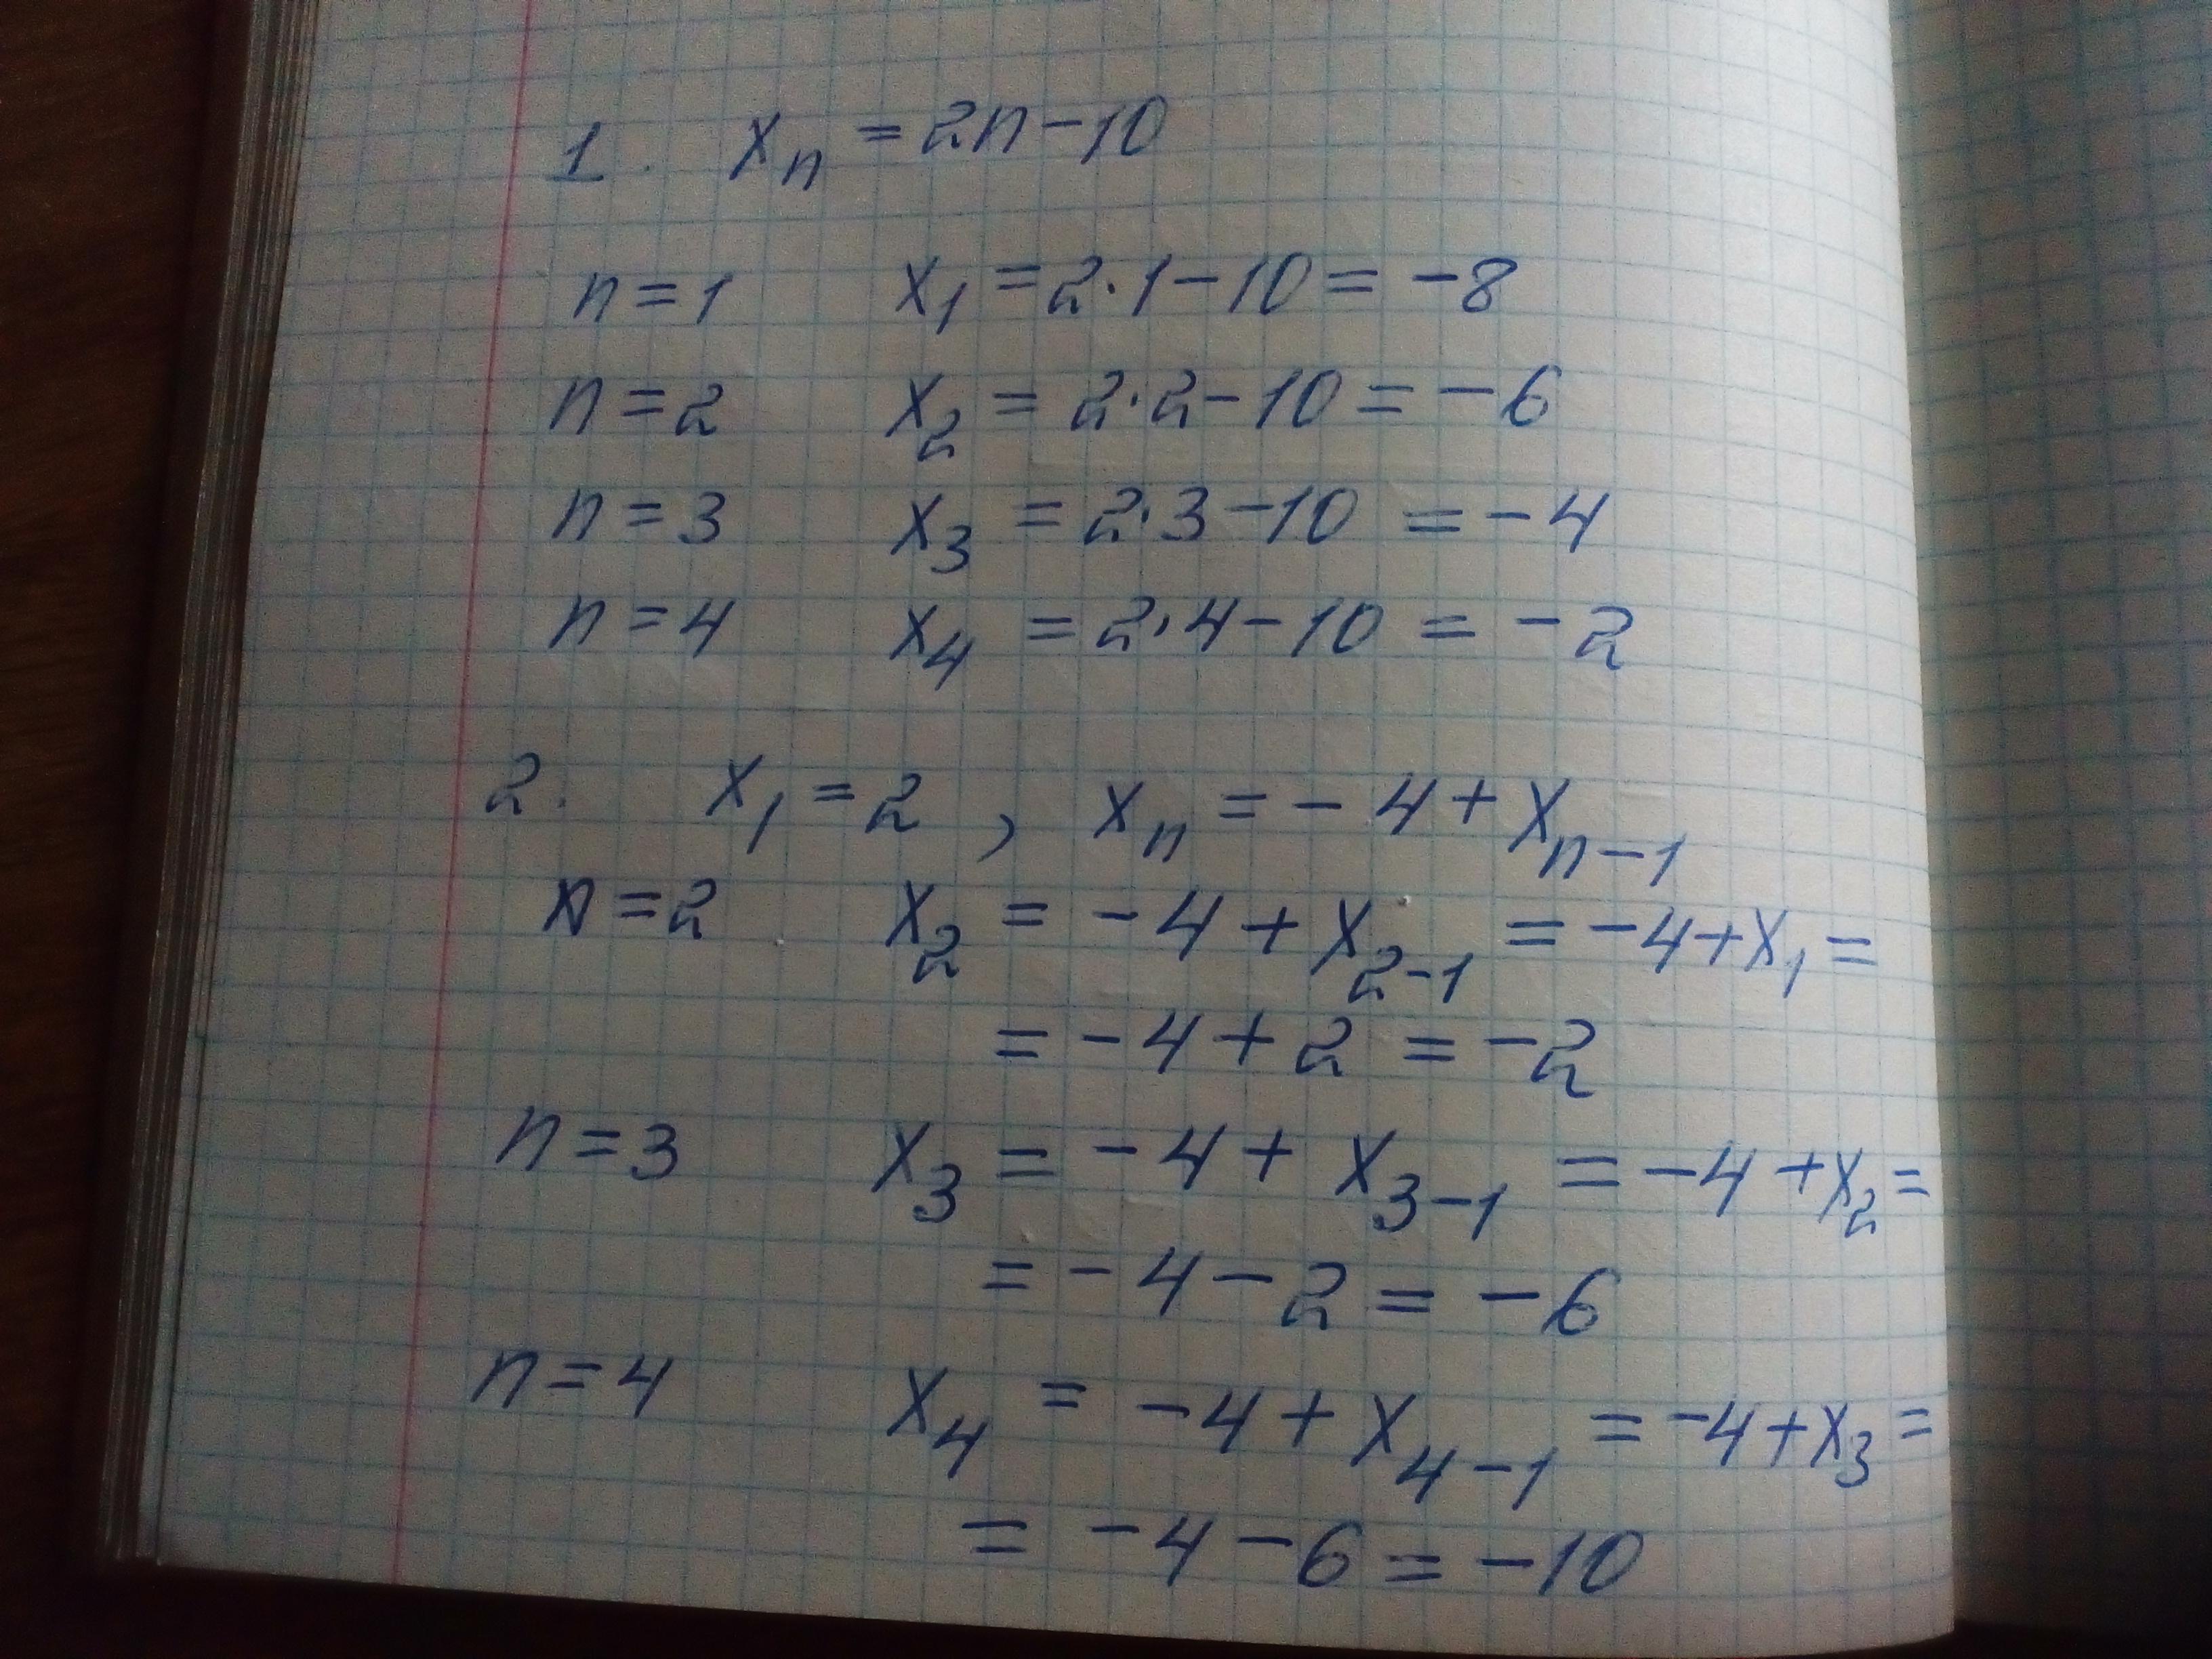 1. xₙ = 2n - 10
n = 1 x₁ = 2·1 - 10 = -8
n = 2 x₂ = 2·2 - 10 = -6
n = 3 x₃ = 2·3 - 10 = -4
n = 4 x₄ = 2·4 - 10 = -2
2. x₁ = 2, xₙ = -4 + xₙ₋₁
n = 2 x₂ = -4 + x₂₋₁ = -4 + x₁ =
= -4 + 2 = -2
n = 3 x₃ = -4 + x₃₋₁ = -4 + x₂ =
= -4 - 2 = -6
n = 4 x₄ = -4 + x₄₋₁ = -4 + x₃ =
= -4 - 6 = -10